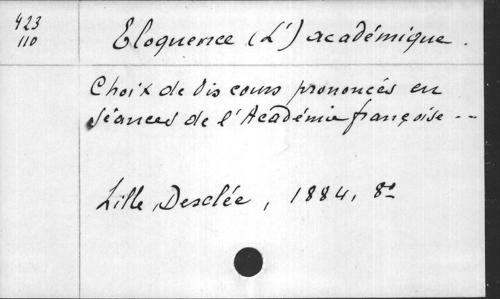 423
110
Eloquence (L') académique.
Choix de discours prononcés en
séances de l'Académie françoise --
Lille, Desclée, 1884, 8º